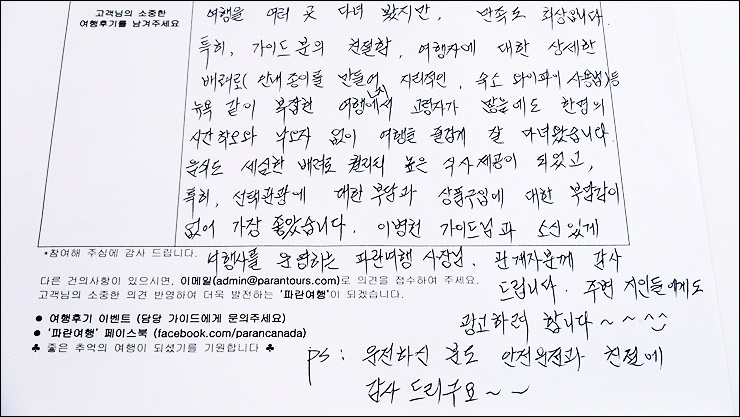 고객님의 소중한
여행후기를 남겨주세요
여행을 여러 곳 다녀 봤지만, 만족도 최상입니다.
특히, 가이드 분의 친절함, 여행자에 대한 상세한
배려로(안내종이를 만들어, 지리적인, 숙소 와이파이 사용법)등
뉴욕 같이 복잡한 여행에서 고령자가 많음에도 한명의
시간착오와 낙오자 없이 여행을 즐겁게 잘 다녀왔습니다.
음식도 세심한 배려로 퀄리티 높은 식사제공이 되었고,
특히, 선택관광에 대한 부담과 상품구입에 대한 부담감이
없어 가장 좋았습니다. 이병천 가이드님과 소신있게
여행사를 운영하는 파란여행 사장님, 관계자분께 감사
드립니다. 주변 지인들에게도
광고하려 합니다~~^^
*참여해 주심에 감사 드립니다.
다른 건의사항이 있으시면, 이메일(admin@parantours.com)로 의견을 접수하여 주세요.
고객님의 소중한 의견 반영하여 더욱 발전하는 '파란여행'이 되겠습니다.
● 여행후기 이벤트 (담당 가이드에게 문의주세요)
● '파란여행' 페이스북 (facebook.com/parancanada)
♣ 좋은 추억의 여행이 되셨기를 기원합니다 ♣
ps: 운전하신 분도 안전운전과 친절에
감사 드리구요~~